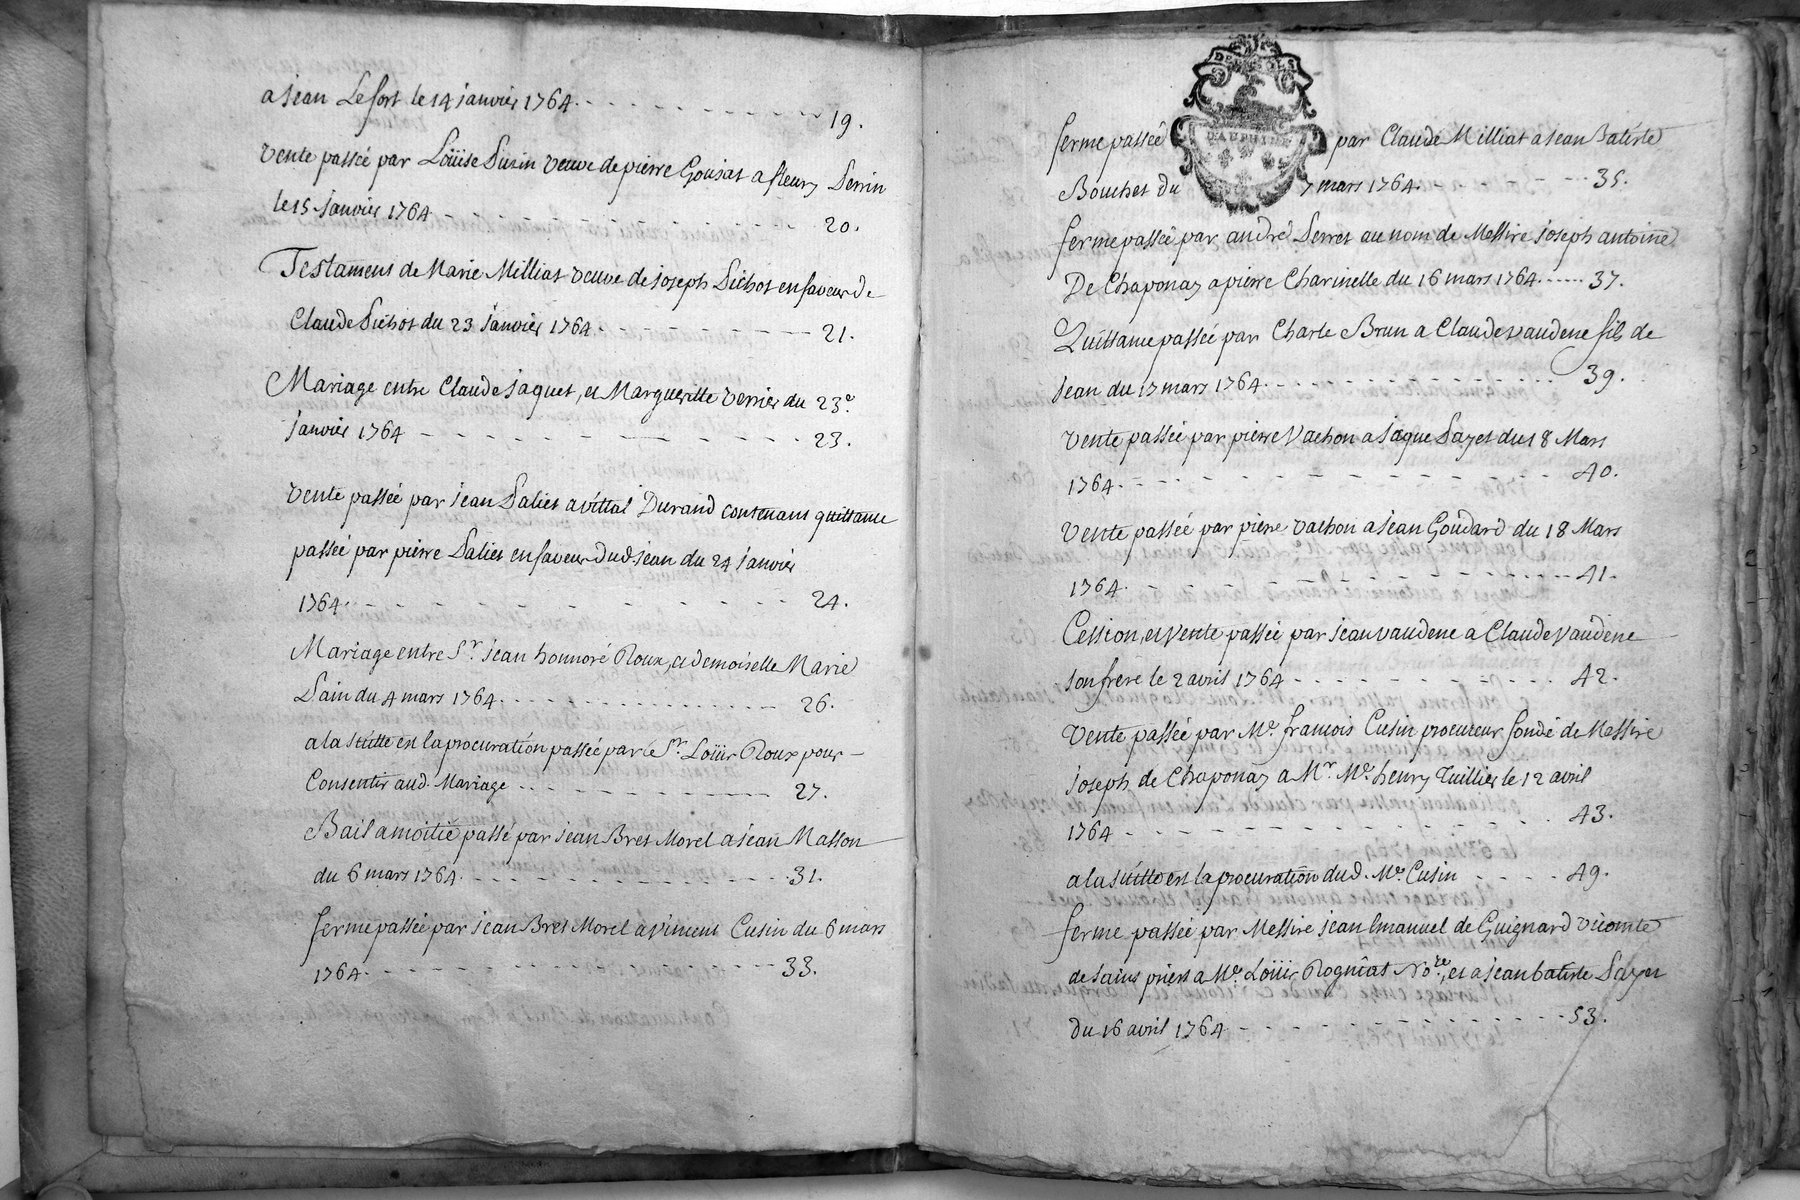 a Jean Lefort le 14 janvier 1764 - - - - - - - - 19.
Vente passée par Loüise Pusin veuve de pierre Goujat a fleury Perrin
le 15 janvier 1764 - - - - - - - - 20.
Testament de Marie Milliat veuve de joseph Pichot en faveur de
Claude Pichot du 23 janvier 1764 - - - - - - - - 21.
Mariage entre Claude jaquet, et Marguerite Verrier du 23e
janvier 1764 - - - - - - - - 23.
Vente passée par jean Paliet a vittal Durand contenant quittance
passée par pierre Paliet en faveur dud. jean du 24 janvier
1764 - - - - - - - - 24.
Mariage entre Sr. jean honnoré Roux, et demoiselle Marie
Pain du 4 mars 1764 - - - - - - - - 26.
a la suitte est la procuration passée par le Sr. Loüis Roux pour
Consentir aud. Mariage - - - - - - - - 27.
Bail a moitié passé par jean Bret Morel a jean Masson
du 6 mars 1764 - - - - - - - - 31.
ferme passée par jean Bret Morel a vincent Cusin du 6 mars
1764 - - - - - - - - 33.
DEUX SOLS
DAUPHINE
ferme passée par Claude Milliat a jean Batiste
Bouchet du 7 mars 1764 - - - - 35.
ferme passée par andré Perret au nom de Messire joseph antoine
De Chaponay a pierre Charinelle du 16 mars 1764 - - - - 37.
Quittance passée par Charle Brun a Claude vaudene fils de
jean du 17 mars 1764 - - - - - - - - 39.
Vente passée par pierre Vachon a jaque Payet du 18 Mars
1764 - - - - - - - - 40.
Vente passée par pierre Vachon a jean Goudard du 18 Mars
1764 - - - - - - - - 41.
Cession, et vente passée par jean vaudene a Claude vaudene
son frere le 2 avril 1764 - - - - - - - - 42.
Vente passée par Me. francois Cusin procureur fondé de Messire
joseph de Chaponay a Mr. Me. henry Tuillier le 12 avril
1764 - - - - - - - - 43.
a la suitte est la procuration dud. Me. Cusin - - - - 49.
ferme passée par Messire jean Emanuel de Guignard vicomte
de saint priest a Me. Loüis Rogniat No.re, et a jean batiste Payet
du 16 avril 1764 - - - - - - - - 53.